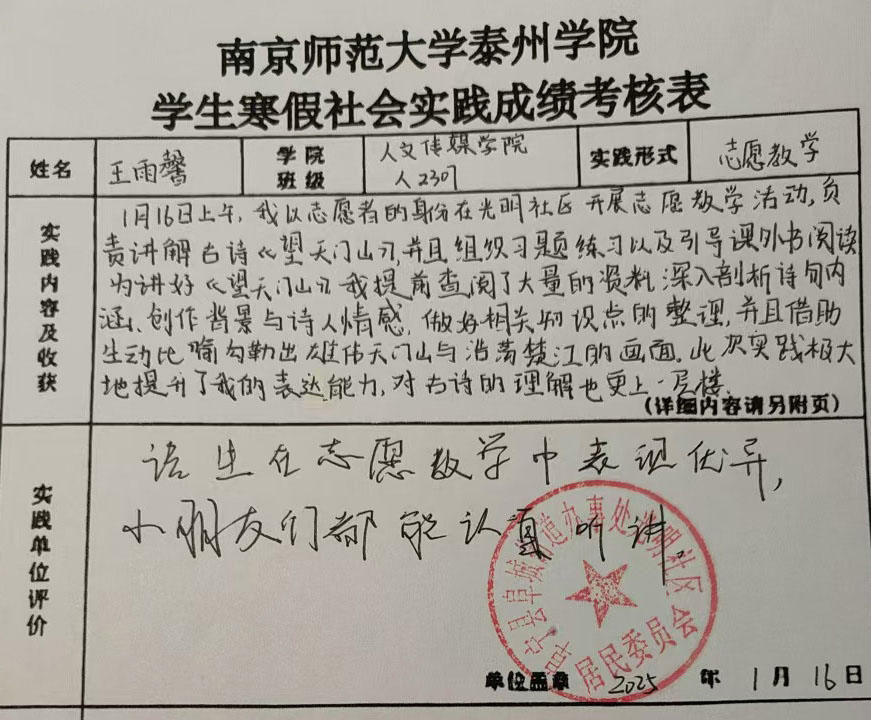 南京师范大学泰州学院
学生寒假社会实践成绩考核表
姓名 王雨馨 学院班级 人文传媒学院 人2307 实践形式 志愿教学
实践内容及收获
1月16日上午,我以志愿者的身份在光明社区开展志愿教学活动,负
责讲解古诗《望天门山》,并且组织习题练习以及引导课外书阅读
为讲好《望天门山》我提前查阅了大量的资料,深入剖析诗句内
涵、创作背景与诗人情感,做好相关知识点的整理,并且借助
生动比喻勾勒出雄伟天门山与浩荡楚江的画面,此次实践极大
地提升了我的表达能力,对古诗的理解也更上一层楼.
(详细内容请另附页)
实践单位评价
该生在志愿教学中表现优异,
小朋友们都能认真听讲。
阜宁县阜城街道办事处光明社区
居民委员会
单位盖章 2025 年 1 月 16 日